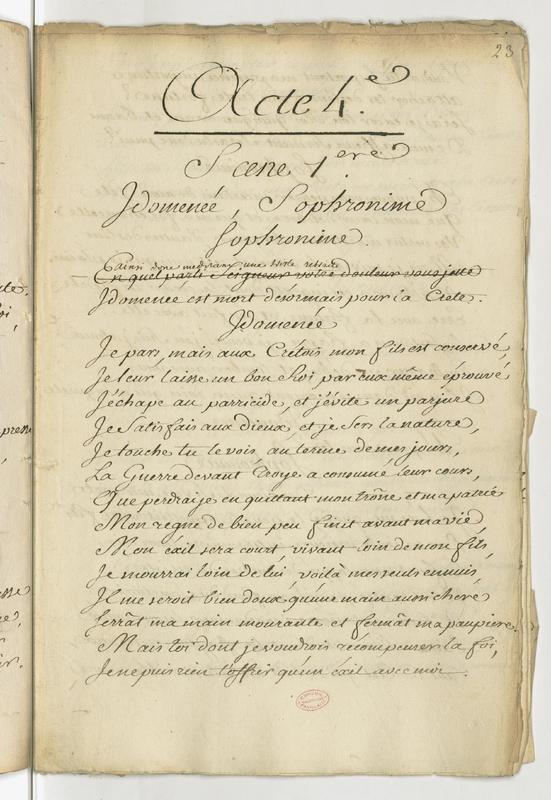 23
Acte 4.e
Scene 1.ere
Jdomeneé, Sophronime
Sophronime.
Ainsi donc meditant une triste retraite
En quel parti Seigneur votre douleur vous jette
Jdomeneé est mort desormais pour la Crete.
Jdomeneé
Je pars, mais aux Crétois mon fils est conservé,
Je leur laisse un bon Roi par eux même éprouvé
J'échape au parricide, et j'évite un parjure
Je Satisfais aux Dieux, et je sers la nature,
Je touche tu le vois, au terme de mes jours,
La Guerre devant Troye a consumé leur cours,
Que perdrai je en quittant mon trône et ma patrie
Mon regne de bien peu finit avant ma vie,
Mon éxil sera court, vivant loin de mon fils,
Je mourrai loin de lui, voilà mes seuls ennuis,
Jl me seroit bien doux qu'une main aussi chere
Serrât ma main mourante et fermât ma paupiere.
Mais toi dont je voudrois récompenser la foi,
Je ne puis rien t'offrir qu'un éxil avec moi.